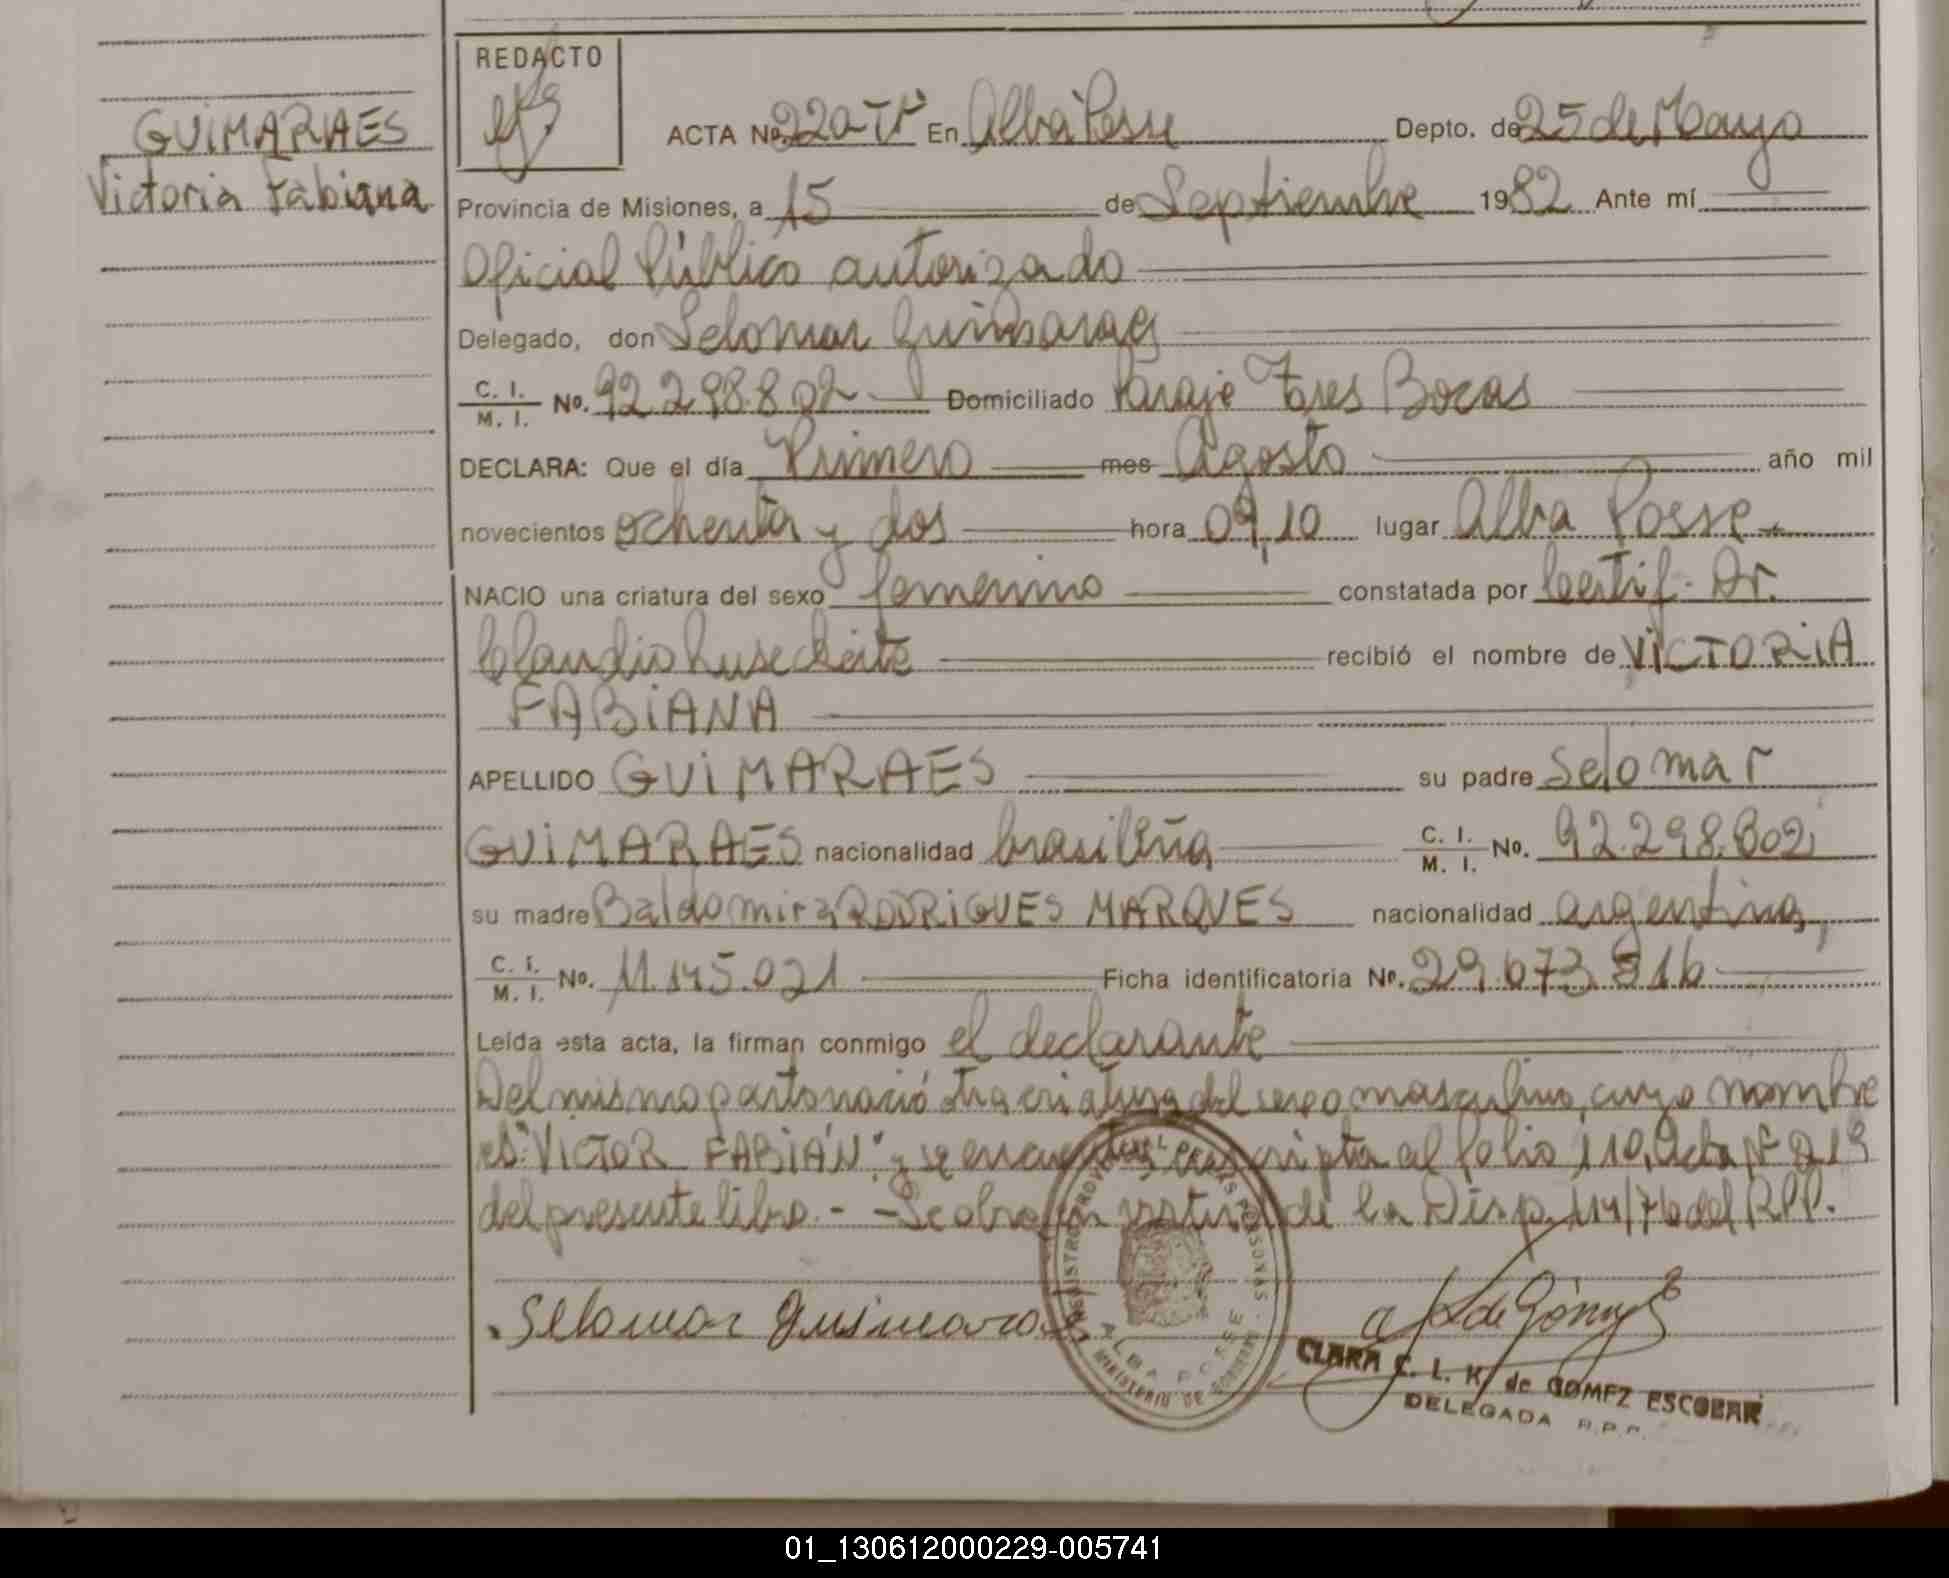 REDACTO
GUIMARAES
Victoria Fabiana
ACTA No. 220-Tº En Alba Posse Depto. de 25 de Mayo
Provincia de Misiones, a 15 de Septiembre 1982 Ante mí
Oficial Público autorizado
Delegado, don Selomar Guimaraes
C. I. / M. I. No. 92.298.802 Domiciliado Paraje Tres Bocas
DECLARA: Que el día Primero mes Agosto año mil
novecientos ochenta y dos hora 09,10 lugar Alba Posse
NACIO una criatura del sexo femenino constatada por Certif. Dr.
Claudio recibió el nombre de VICTORIA
FABIANA
APELLIDO GUIMARAES su padre Selomar
GUIMARAES nacionalidad brasileña C. I. / M. I. No. 92.298.802
su madre Baldomira RODRIGUES MARQUES nacionalidad argentina,
C. I. / M. I. No. 11.145.021 Ficha identificatoria No. 29.673.316
Leída esta acta, la firman conmigo el declarante
Del mismo parto nació otra criatura del sexo masculino, cuyo nombre
es "VICTOR FABIÁN" y se encuentra al folio 110, Acta Nº 219
del presente libro. - - Se obra en virtud de la Disp. 114/76 del R.P.P.
Selomar Guimaraes
REGISTRO PROVINCIAL DE LAS PERSONAS
ALBA POSSE
MINISTERIO DE GOBIERNO
CLARA C. L. K. de GOMEZ ESCOBAR
DELEGADA R.P.P.
01_130612000229-005741